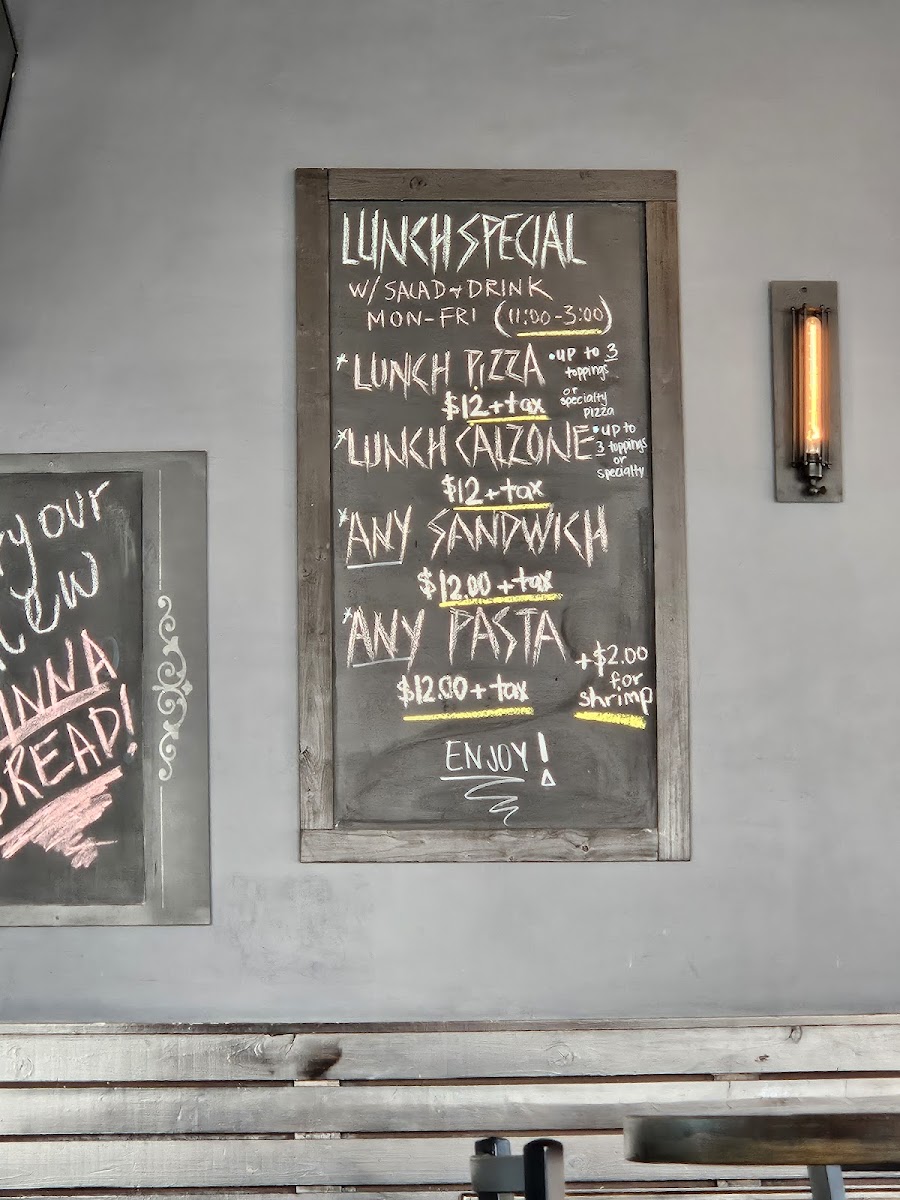 LUNCH SPECIAL
W/ SALAD + DRINK
MON-FRI (11:00-3:00)
* LUNCH PIZZA
• up to 3
toppings
or
specialty
pizza
$12 + tax
* LUNCH CALZONE
• up to
3 toppings
or
specialty
$12 + tax
* ANY SANDWICH
$12.00 + tax
* ANY PASTA
$12.00 + tax
+$2.00
for
shrimp
ENJOY!
ry our
new
INNA
BREAD!